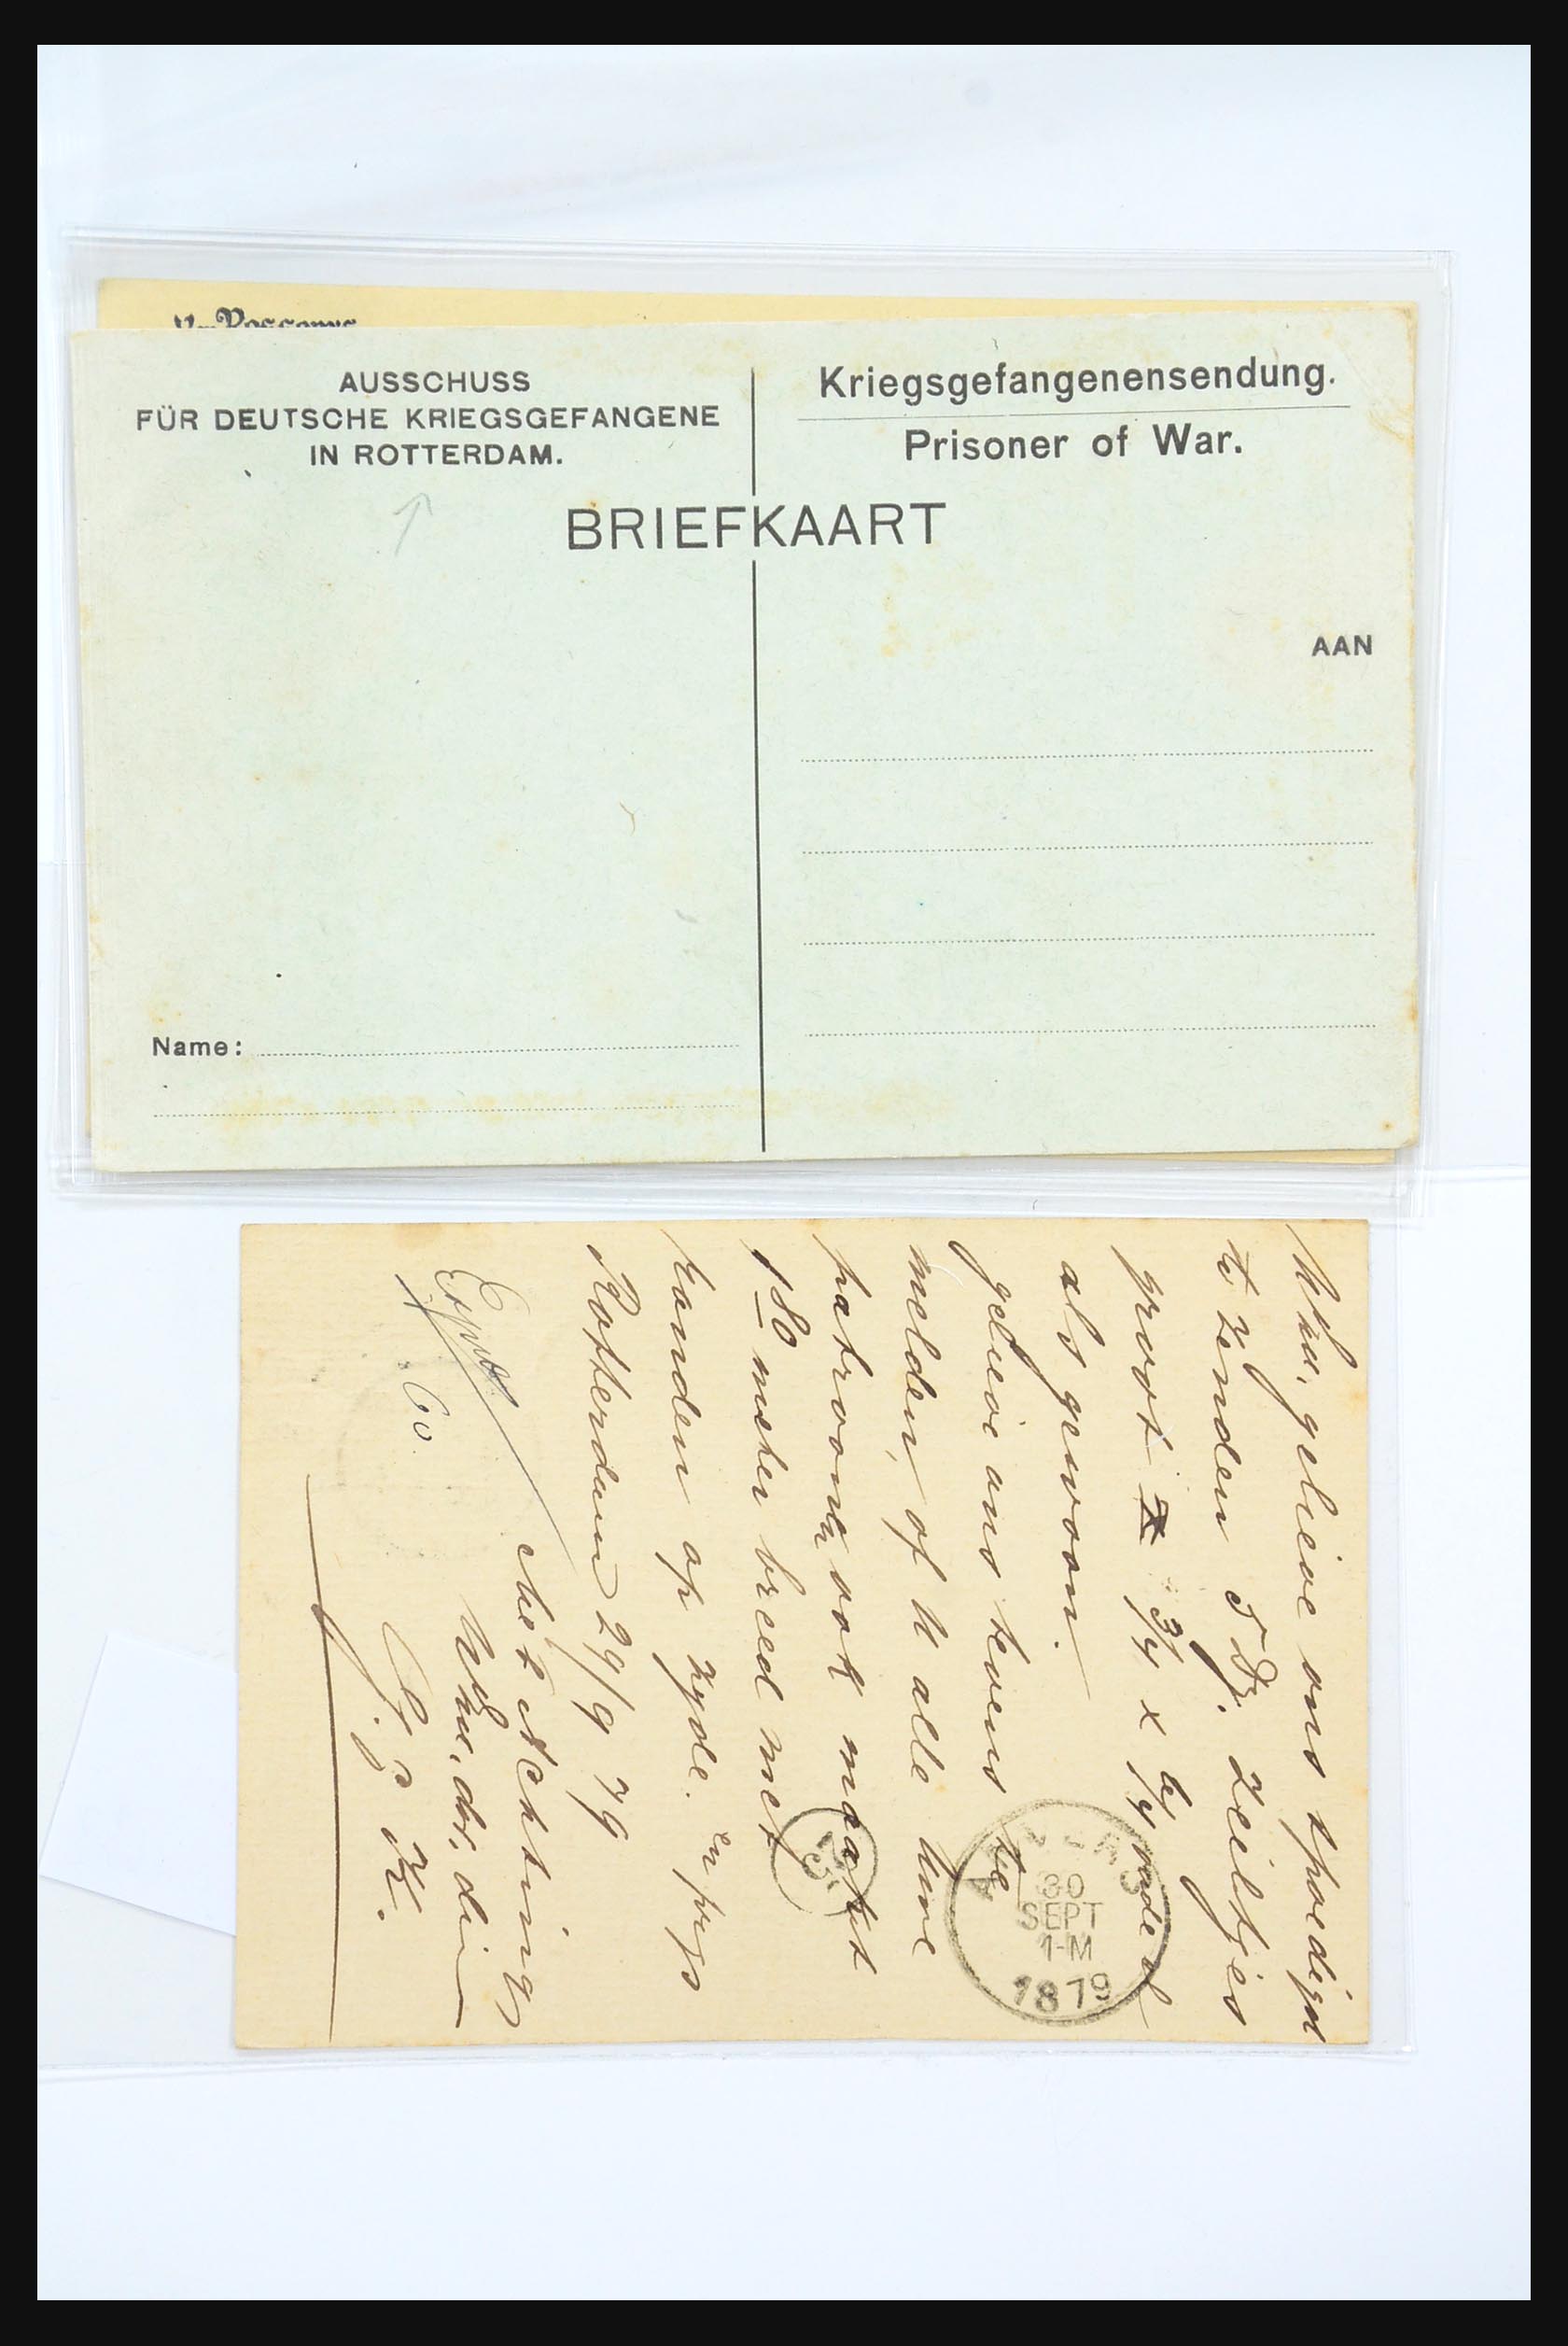 AUSSCHUSS
FÜR DEUTSCHE KRIEGSGEFANGENE
IN ROTTERDAM.
Kriegsgefangenensendung.
Prisoner of War.
BRIEFKAART
AAN
Name:
gelieve ons spoedigst
te zenden zeiltjes
groot 3/4 x 6/4 onder
als gewoon.
gelieve ons tevens te
melden, of U alle Uwe
patroonen ook maakt
180 meter breed met
randen op zyde. en prys
Rotterdam 29/9 79
Met Achting
30
SEPT
1-M
1879